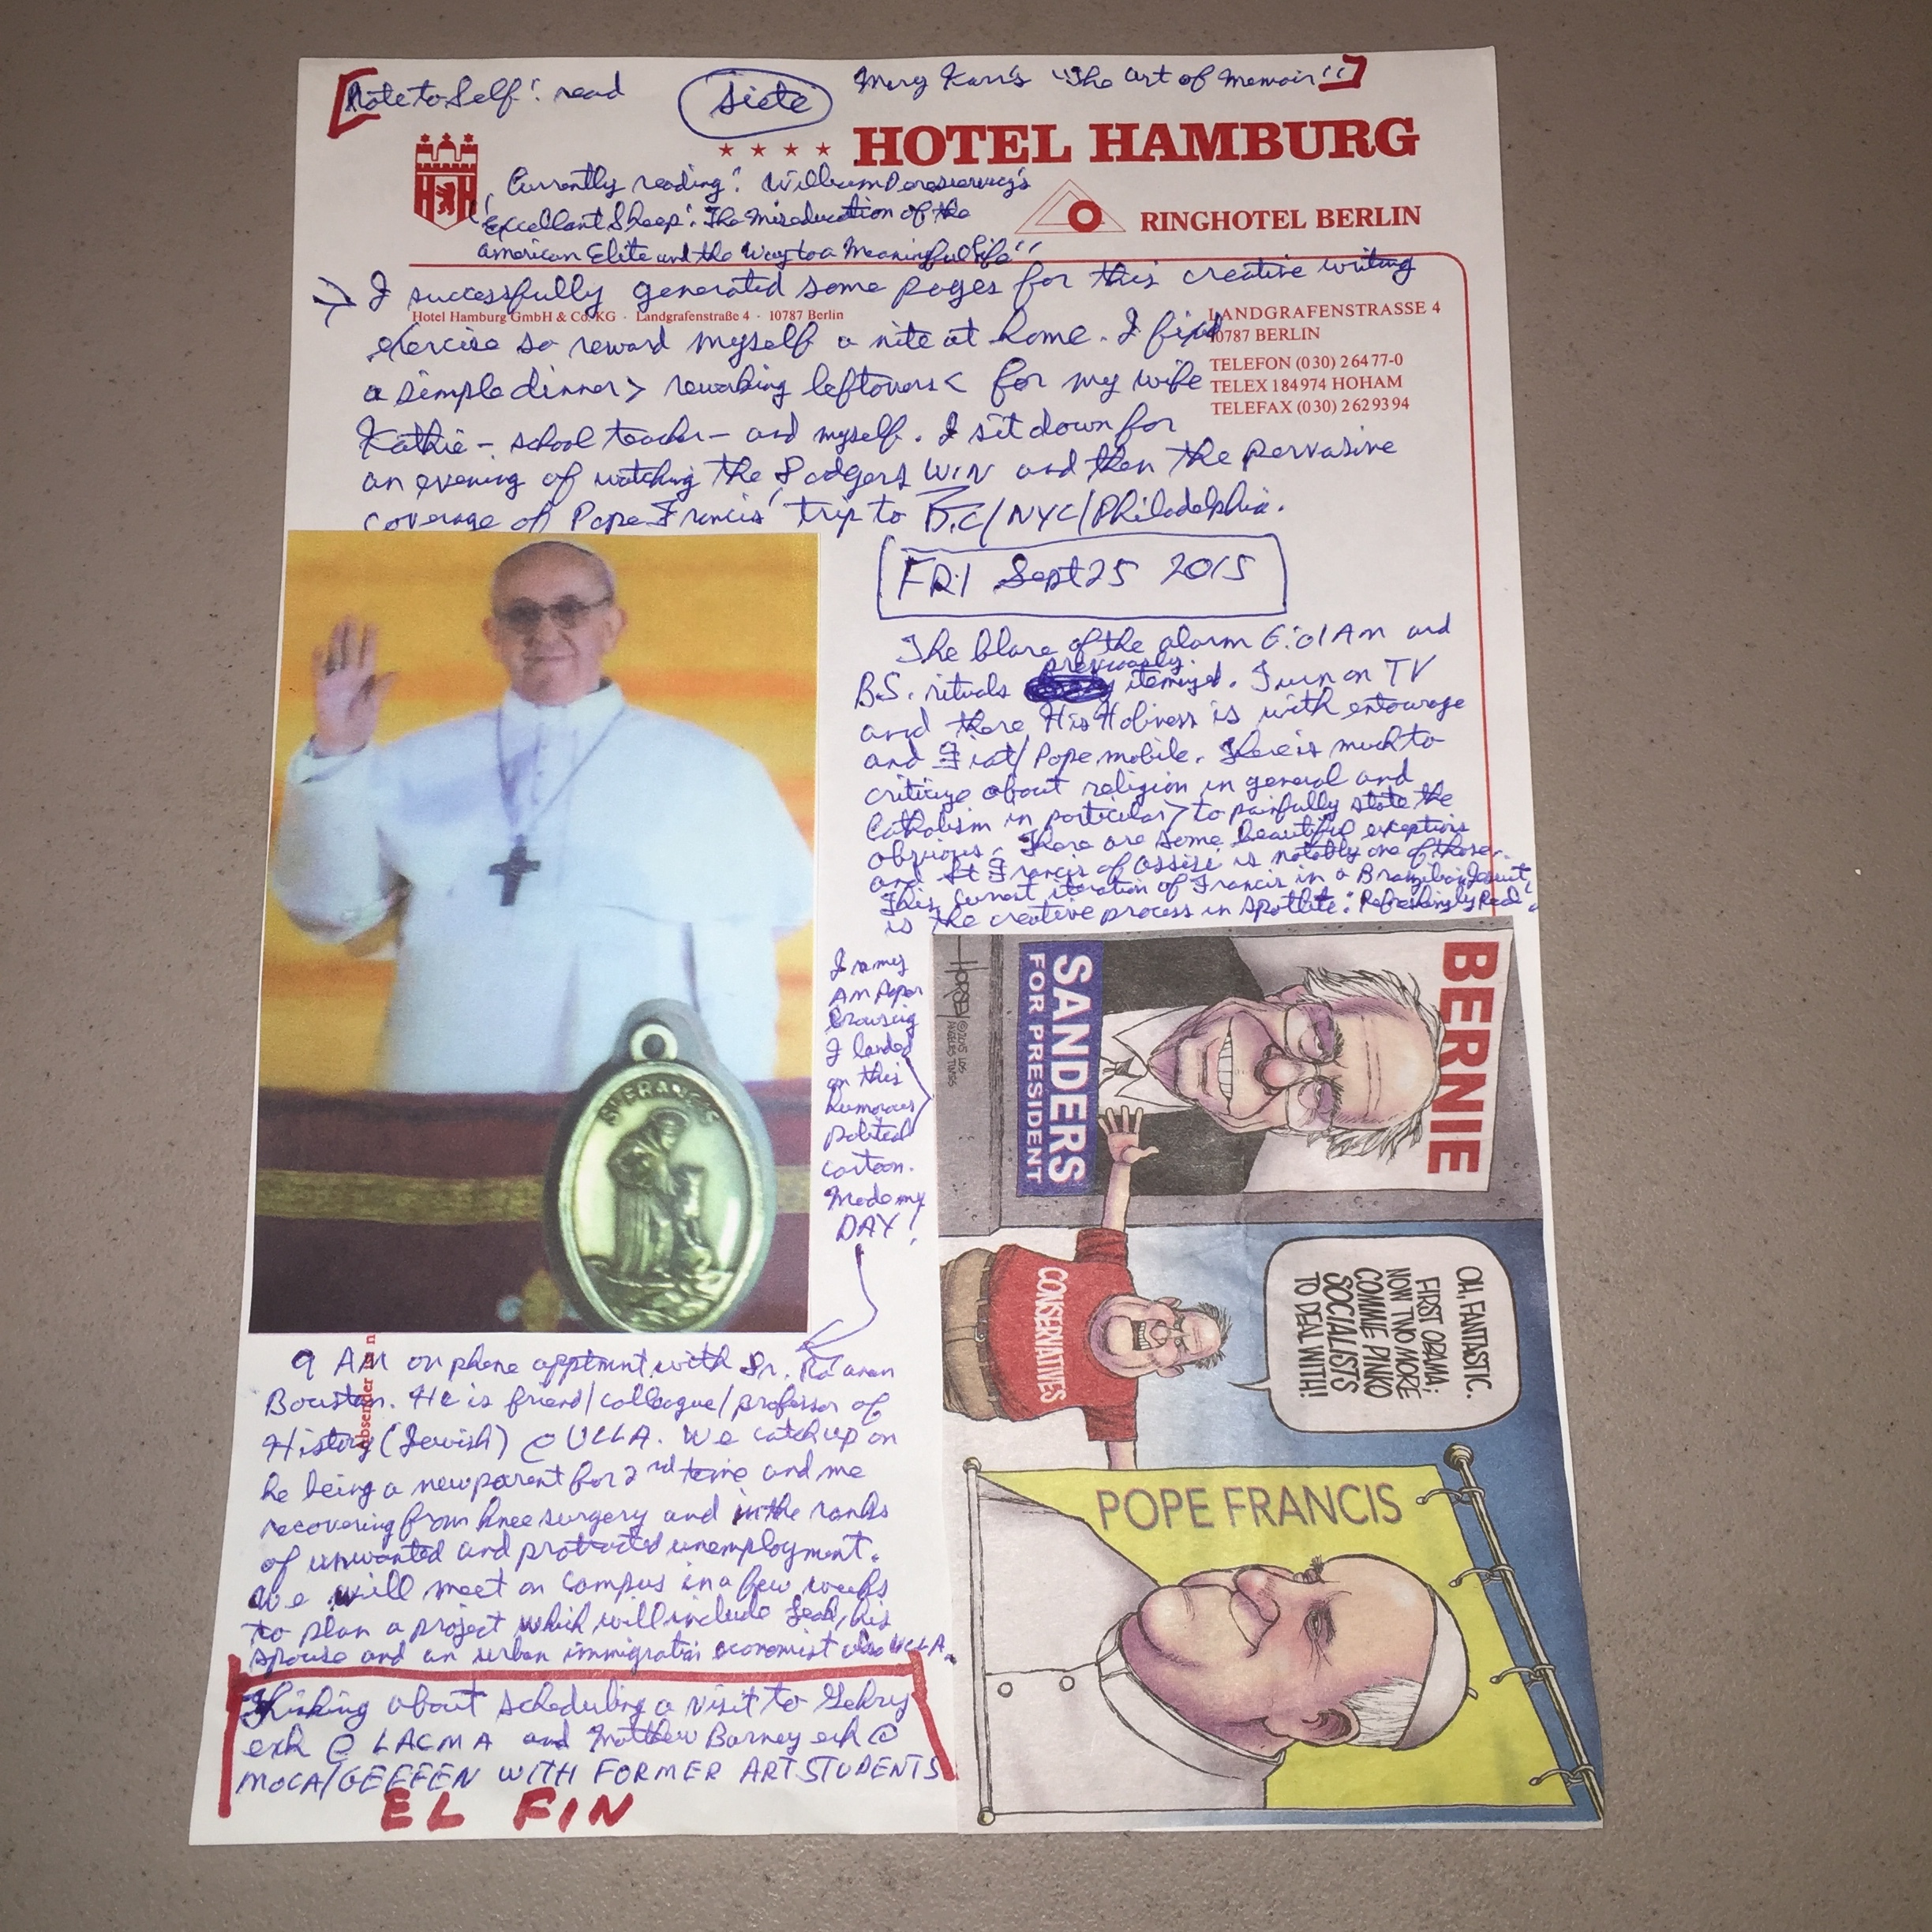 [Note to Self: read
siete
Mary Karr's "The Art of Memoir"]
★ ★ ★ ★ HOTEL HAMBURG
RINGHOTEL BERLIN
Currently reading: William Deresiewicz's
"Excellant Sheep: The Miseducation of the
American Elite and the Way to a Meaningful Life"
→ I successfully generated some pages for this creative writing
Hotel Hamburg GmbH & Co. KG · Landgrafenstraße 4 · 10787 Berlin
LANDGRAFENSTRASSE 4
10787 BERLIN
TELEFON (030) 26477-0
TELEX 184974 HOHAM
TELEFAX (030) 2629394
exercise so reward myself a nite at home. I fix
a simple dinner > reworking leftovers < for my wife
Kathie - school teacher - and myself. I sit down for
an evening of watching the Dodgers WIN and then the pervasive
coverage of Pope Francis' trip to D.C/NYC/Philadelphia.
FRI Sept 25 2015
The blare of the alarm 6:01AM and
B.S. rituals previously itemized. Turn on TV
and there His Holiness is with entourage
and Fiat/Pope mobile. There is much to
criticize about religion in general and
Catholism in particular > to painfully state the
obvious. There are some beautiful exceptions
and St Francis of Assisi is notably one of those.
This current iteration of Francis in a Brazilian Jesuit,
is the creative process in spotlite:
In my
AM Paper
browsing
I landed
on this
humorous
political
cartoon.
Made my
DAY!
BERNIE
SANDERS
FOR PRESIDENT
HORSEY
©2015 LOS
ANGELES TIMES
OH, FANTASTIC.
FIRST OBAMA;
NOW TWO MORE
COMMIE PINKO
SOCIALISTS
TO DEAL WITH!
CONSERVATIVES
POPE FRANCIS
ST FRANCIS
Absender
9 AM on phone apptmnt with Dr. Ra'anan
Boustan. He is friend/colleague/professor of
History (Jewish) @ UCLA. We catch up on
he being a new parent for 2nd time and me
recovering from knee surgery and in the ranks
of unwanted and protracted unemployment.
We will meet on campus in a few weeks
to plan a project which will include Leah, his
spouse and an urban immigration economist also UCLA.
Thinking about scheduling a visit to Gehry
exh @ LACMA and Matthew Barney exh @
MOCA/GEFFEN WITH FORMER ART STUDENTS
EL FIN